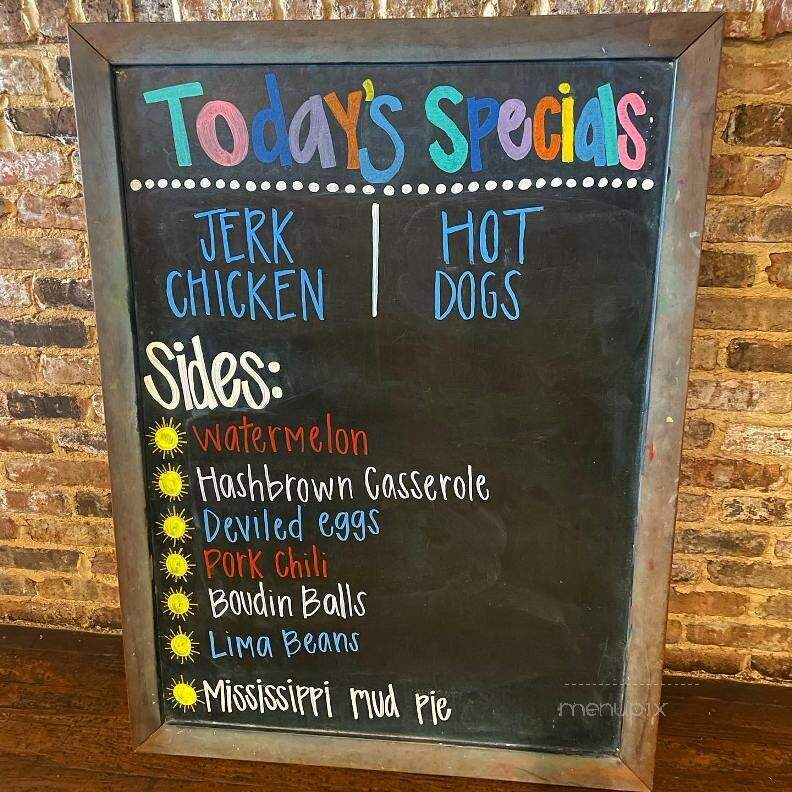 Today's Specials
JERK CHICKEN | HOT DOGS
Sides:
Watermelon
Hashbrown Casserole
Deviled eggs
Pork Chili
Boudin Balls
Lima Beans
Mississippi mud pie
menupix